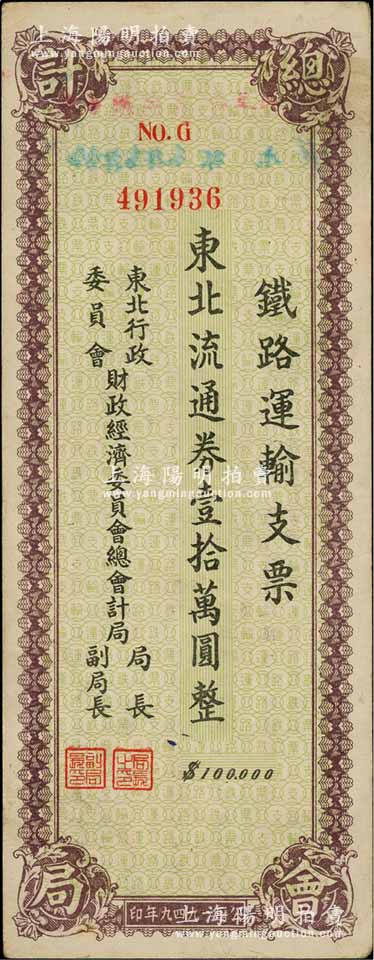 上海陽明拍賣
www.yangmingauction.com
總
計
會
局
NO. G
491936
鐵路運輸支票
東北流通券壹拾萬圓整
$100.000
東北行政
委員會
財政經濟委員會總會計局
局長
副局長
上海陽明拍賣
www.yangmingauction.com
印年九四九
上海陽明拍賣
www.yangmingauction.com